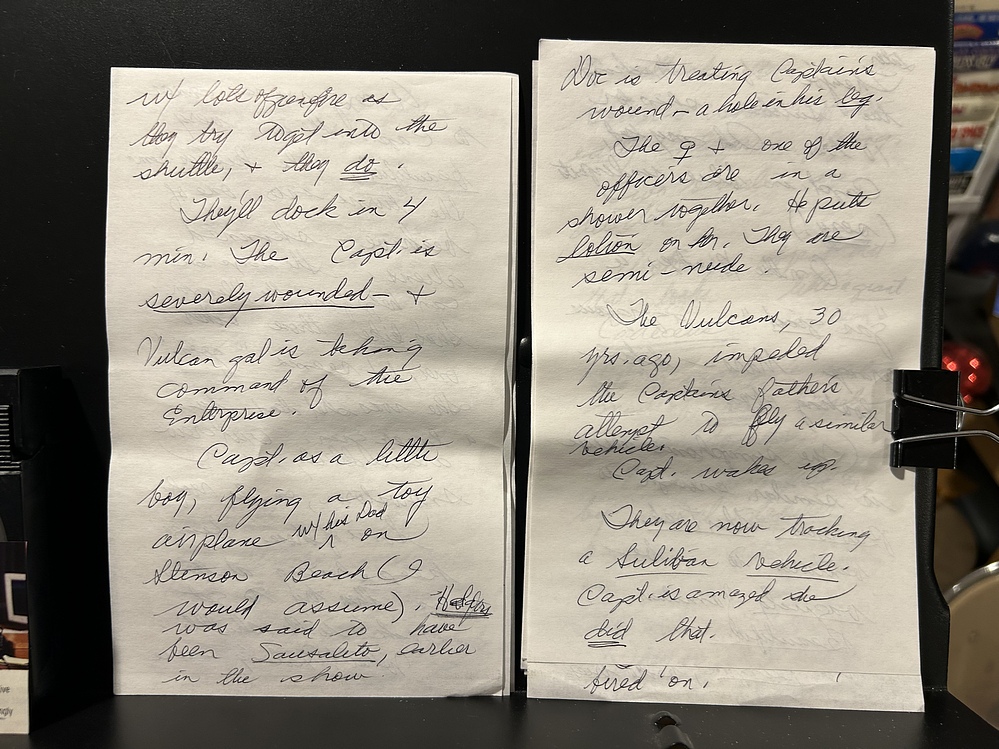 w/ lots of gunfire as
they try to get into the
shuttle, + they do.
They'll dock in 4
min. The Capt. is
severely wounded - +
Vulcan gal is taking
command of the
Enterprise.
Capt. as a little
boy, flying a toy
airplane w/ his Dad on
Stinson Beach (I
would assume).
was said to have
been Sausalito, earlier
in the show
Doc is treating Captain's
wound - a hole in his leg.
The ♀ + one of the
officers are in a
shower together. He puts
lotion on her. They are
semi-nude.
The Vulcans, 30
yrs. ago, impeded
the Captain's father's
attempt to fly a similar
vehicle.
Capt. wakes up.
They are now tracking
a Suliban vehicle.
Capt. is amazed she
did that.
fired on.